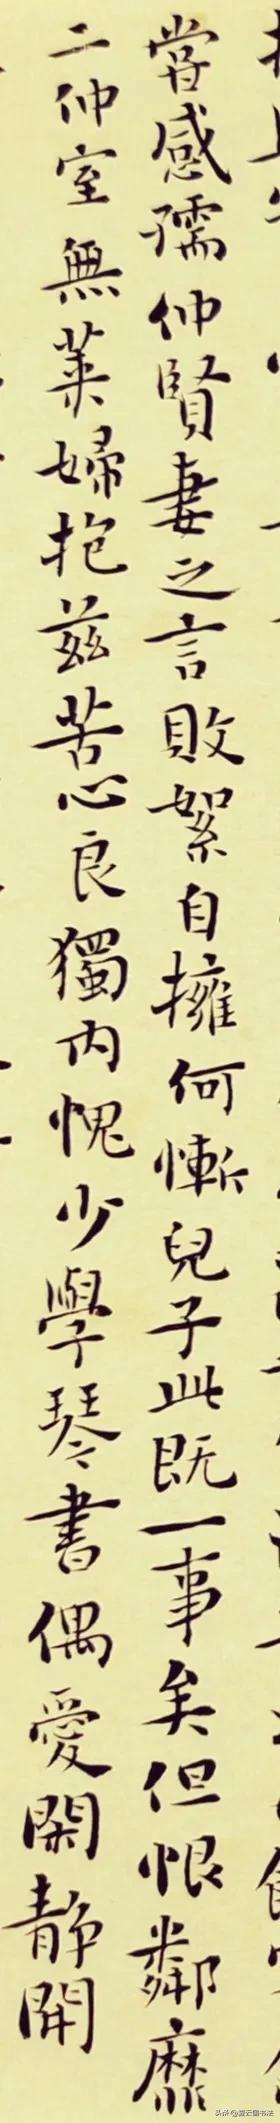 嘗感孺仲賢妻之言敗絮自擁何慚兒子此既一事矣但恨鄰靡
二仲室無萊婦抱茲苦心良獨內愧少學琴書偶愛閑靜開
头条 @爱云图书法